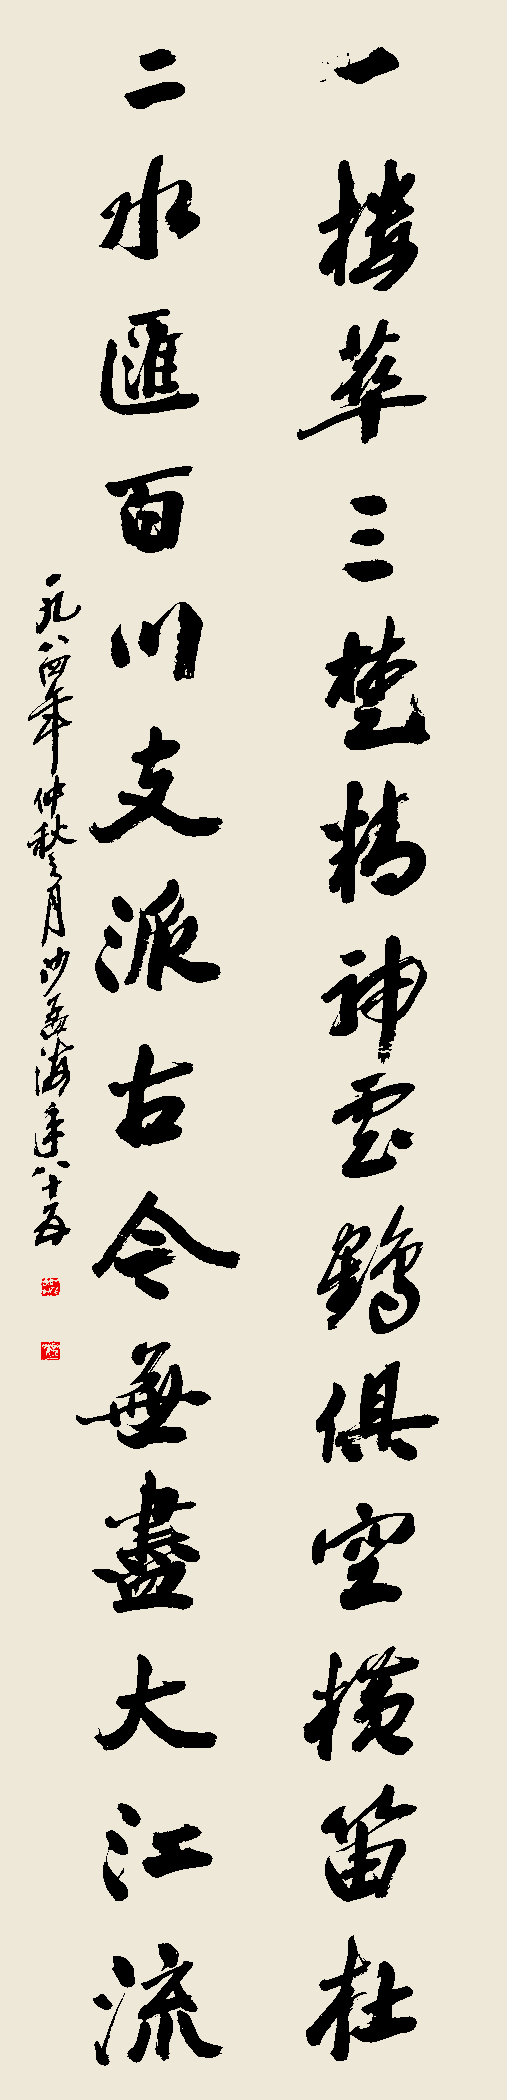 一樓萃三楚精神雲鶴俱空橫笛在
二水匯百川支派古今無盡大江流
一九八四年仲秋之月沙孟海年八十五